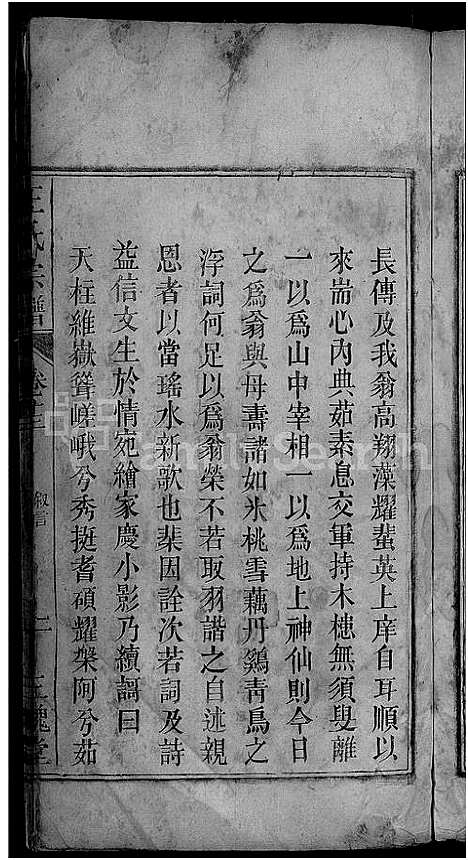 長傳及我翁高翔藻耀蜚英上庠自耳順以
來耑心內典茹素息交軍持木槵無須叟離
一以爲山中宰相一以爲地上神仙則今日
之爲翁與母壽諸如氷桃雪藕丹鷄青鳥之
浮詞何足以爲翁榮不若取羽諧之自述親
恩者以當瑤水新歌也棐因詮次若詞及詩
益信文生於情宛繪家慶小影乃續謌曰
天柱維嶽聳嵯峨兮秀挺耆碩耀槃阿兮茹
王氏宗譜 卷之二 叙言 二 三槐堂
Family Search